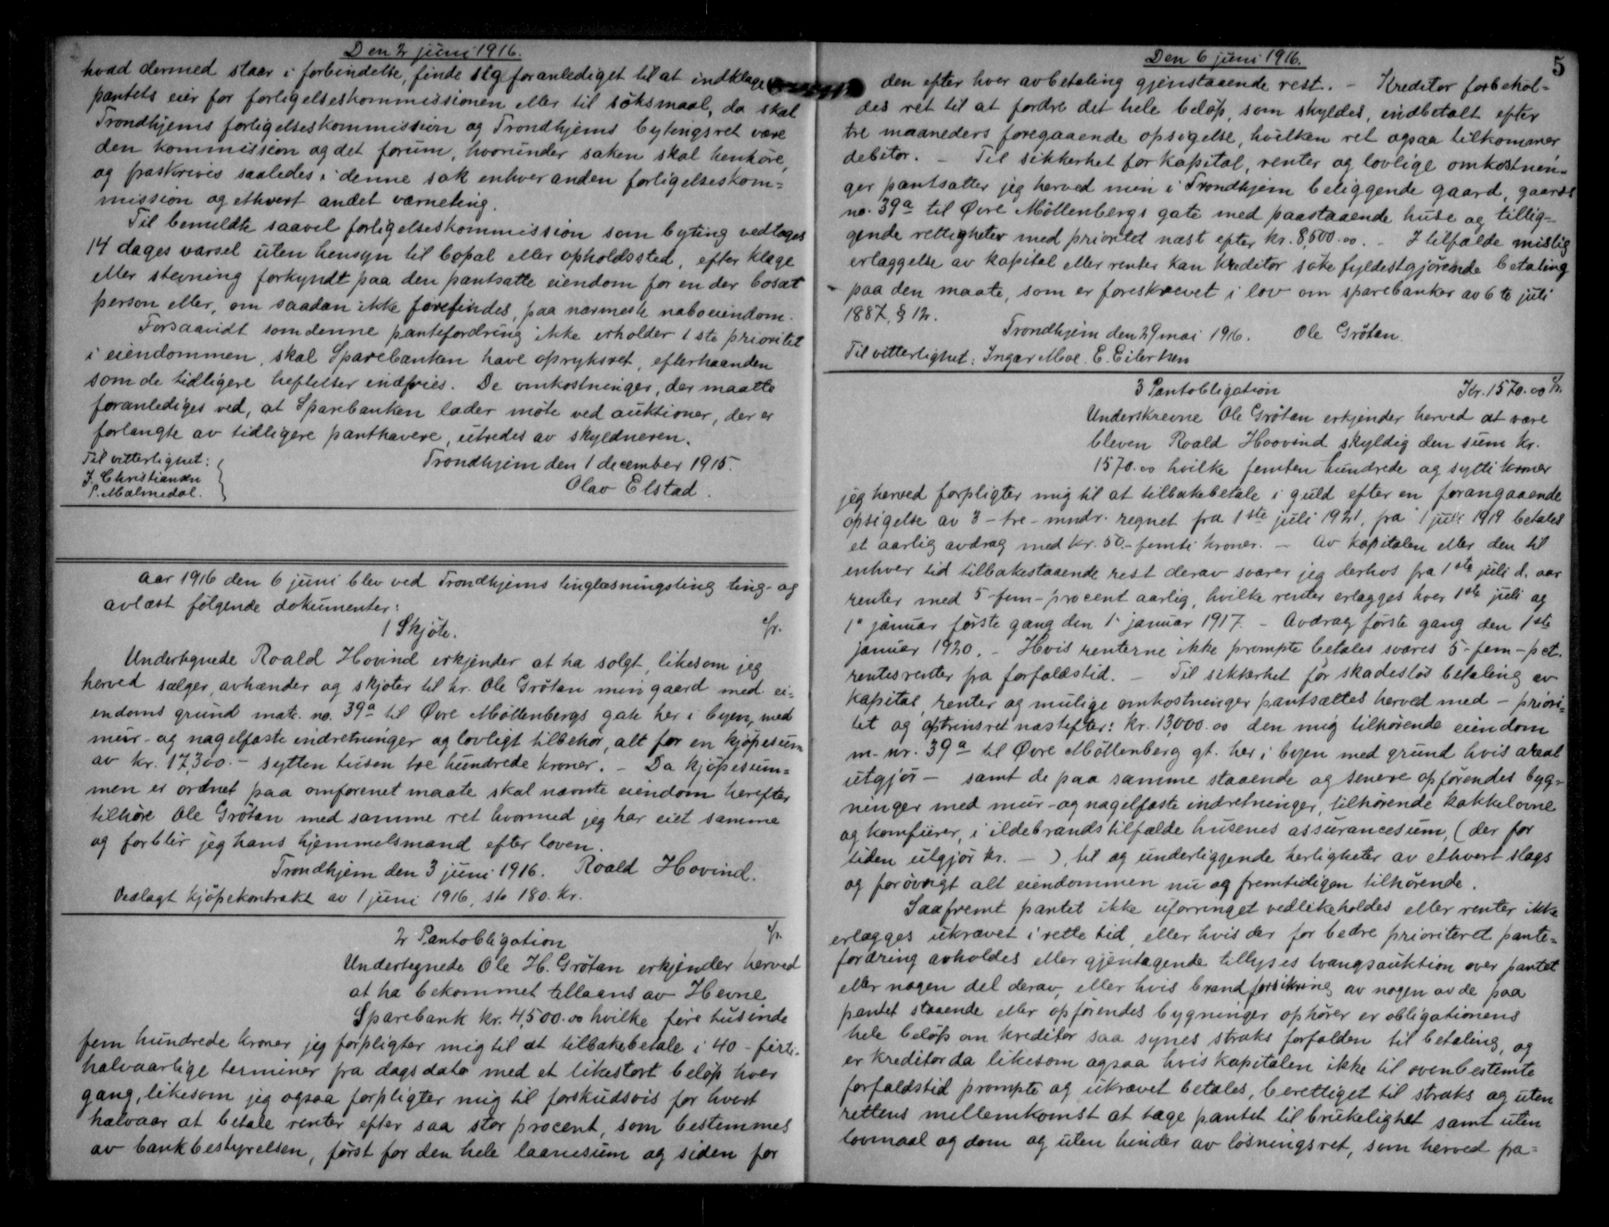 Den 2 juni 1916.
hvad dermed staar i forbindelse, finde sig foranlediget til at indklage
pantets eier for forligelseskommissionen eller til söksmaal, da skal
Trondhjems forligelseskommission og Trondhjems bytingsret være
den kommission og det forum, hvorunder saken skal henhöre,
og fraskrives saaledes i denne sak enhver anden forligelseskom=
mission og ethvert andet værneting.
Til bemeldte saavel forligelseskommission som byting vedtages
14 dages varsel uten hensyn til bopal eller opholdssted, efter klage
eller stevning forkyndt paa den pantsatte eiendom for en der bosat
person eller, om saadan ikke forefindes, paa nærmeste naboeiendom.
Forsaavidt som denne pantefordring ikke erholder 1ste prioritet
i eiendommen, skal Sparebanken have opryksret, efterhaanden
som de tidligere heftelser indfries. De omkostninger, der maatte
foranlediges ved, at Sparebanken lader møte ved auktioner, der er
forlangte av tidligere panthavere, utredes av skyldneren.
Til vitterlighet:
Trondhjem den 1 december 1915.
J. Christiansen
Olav Elstad.
P. Malmedal.
Aar 1916 den 6 juni blev ved Trondhjems tinglæsningsting ting- og
avlæst følgende dokumenter:
1 Skjöte.
Undertegnede Roald Hovind erkjender at ha solgt, likesom jeg
herved sælger, avhænder og skjøter til hr. Ole Grötan min gaard med ei=
endoms grund matr. no. 39a til Øvre Møllenbergs gate her i byen, med
mur- og nagelfaste indretninger og lovligt tilbehør, alt for en kjøpesum
av kr. 17,300.- sytten tusen tre hundrede kroner. - Da kjøpesum=
men er ordnet paa omforenet maate skal nævnte eiendom herefter
tilhøre Ole Grötan med samme ret hvormed jeg har eiet samme
og forblir jeg hans hjemmelsmand efter loven.
Trondhjem den 3 juni 1916. Roald Hovind.
Vedlagt kjöpekontrakt av 1 juni 1916, sto 180 kr.
2 Pantobligation
Undertegnede Ole H. Grötan erkjender herved
at ha bekommet tillaans av Hevne
Sparebank kr. 4,500.00 hvilke fire tusinde
fem hundrede kroner jeg forpligter mig til at tilbakebetale i 40 - firti-
halvaarlige terminer fra dags dato med et likestort beløp hver
gang, likesom jeg ogsaa forpligter mig til forskudsvis for hvert
halvaar at betale renter efter saa stor procent, som bestemmes
av bankbestyrelsen, först for den hele laanesum og siden for
Den 6 juni 1916.
5
den efter hver avbetaling gjenstaaende rest. - Kreditor forbehol=
des ret til at fordre det hele beløp, som skyldes, indbetalt efter
tre maaneders foregaaende opsigelse, hvilken ret ogsaa tilkommer
debitor. - Til sikkerhet for kapital, renter og lovlige omkostnin=
ger pantsatter jeg herved min i Trondhjem beliggende gaard, gaards
no. 39a til Øvre Møllenbergs gate med paastaaende huse og tillig=
gende rettigheter med prioritet næst efter kr. 8,500.00. - I tilfælde mislig
erlæggelse av kapital eller renter kan kreditor söke fyldestgjørende betaling
paa den maate, som er foreskrevet i lov om sparebanker av 6te juli
1887, § 12.
Trondhjem den 29 mai 1916. Ole Grötan.
Til vitterlighet: Ingar Moe. E. Eilertsen
3 Pantobligation Kr. 1570.00
Underskrevne Ole Grötan erkjender herved at være
bleven Roald Hoovind skyldig den sum kr.
1570.00 hvilke femten hundrede og sytti kroner
jeg herved forpligter mig til at tilbakebetale i guld efter en forangaaende
opsigelse av 3 - tre - mndr. regnet fra 1ste juli 1921, fra 1 juli 1919 betales
et aarlig avdrag med kr. 50.- femti kroner. - Av kapitalen eller den til
enhver tid tilbakestaaende rest derav svarer jeg derhos fra 1ste juli d. aar
renter med 5 - fem - procent aarlig, hvilke renter erlægges hver 1ste juli og
1' januar første gang den 1' januar 1917. - Avdrag første gang den 1ste
januar 1920. - Hvis renterne ikke prompte betales svares 5 - fem - pct.
rentesrenter fra forfaldstid. - Til sikkerhet for skadeslös betaling av
kapital, renter og mulige omkostninger pantsættes herved med - priori=
tet og optrinsret næstefter: kr. 13,000.00 den mig tilhørende eiendom
m. nr. 39a til Øvre Møllenberg gt. her i byen med grund hvis areal
utgjør - samt de paa samme staaende og senere opførendes byg=
ninger med mur- og nagelfaste indretninger, tilhørende kakkelovne
og komfurer, i ildebrandstilfælde husenes assurancesum, (der for
tiden utgjør kr. - ), til og underliggende herligheter av ethvert slags
og forövrigt alt eiendommen nu og fremtidigen tilhørende.
Saafremt pantet ikke uforringet vedlikeholdes eller renter ikke
erlægges ukrævet i rette tid, eller hvis der for bedre prioriteret pante=
fordring avholdes eller gjentagende tillyses tvangsauktion over pantet
eller nogen del derav, eller hvis brandforsikring av nogen av de paa
pantet staaende eller opførendes bygninger ophører er obligationens
hele beløp om kreditor saa synes straks forfalden til betaling, og
er kreditor da likesom ogsaa hvis kapitalen ikke til ovenbestemte
forfaldstid prompte og ukrævet betales, berettiget til straks og uten
rettens mellemkomst at tage pantet til brukelighet samt uten
lovmaal og dom og uten hinder av løsningsret, som herved fra=